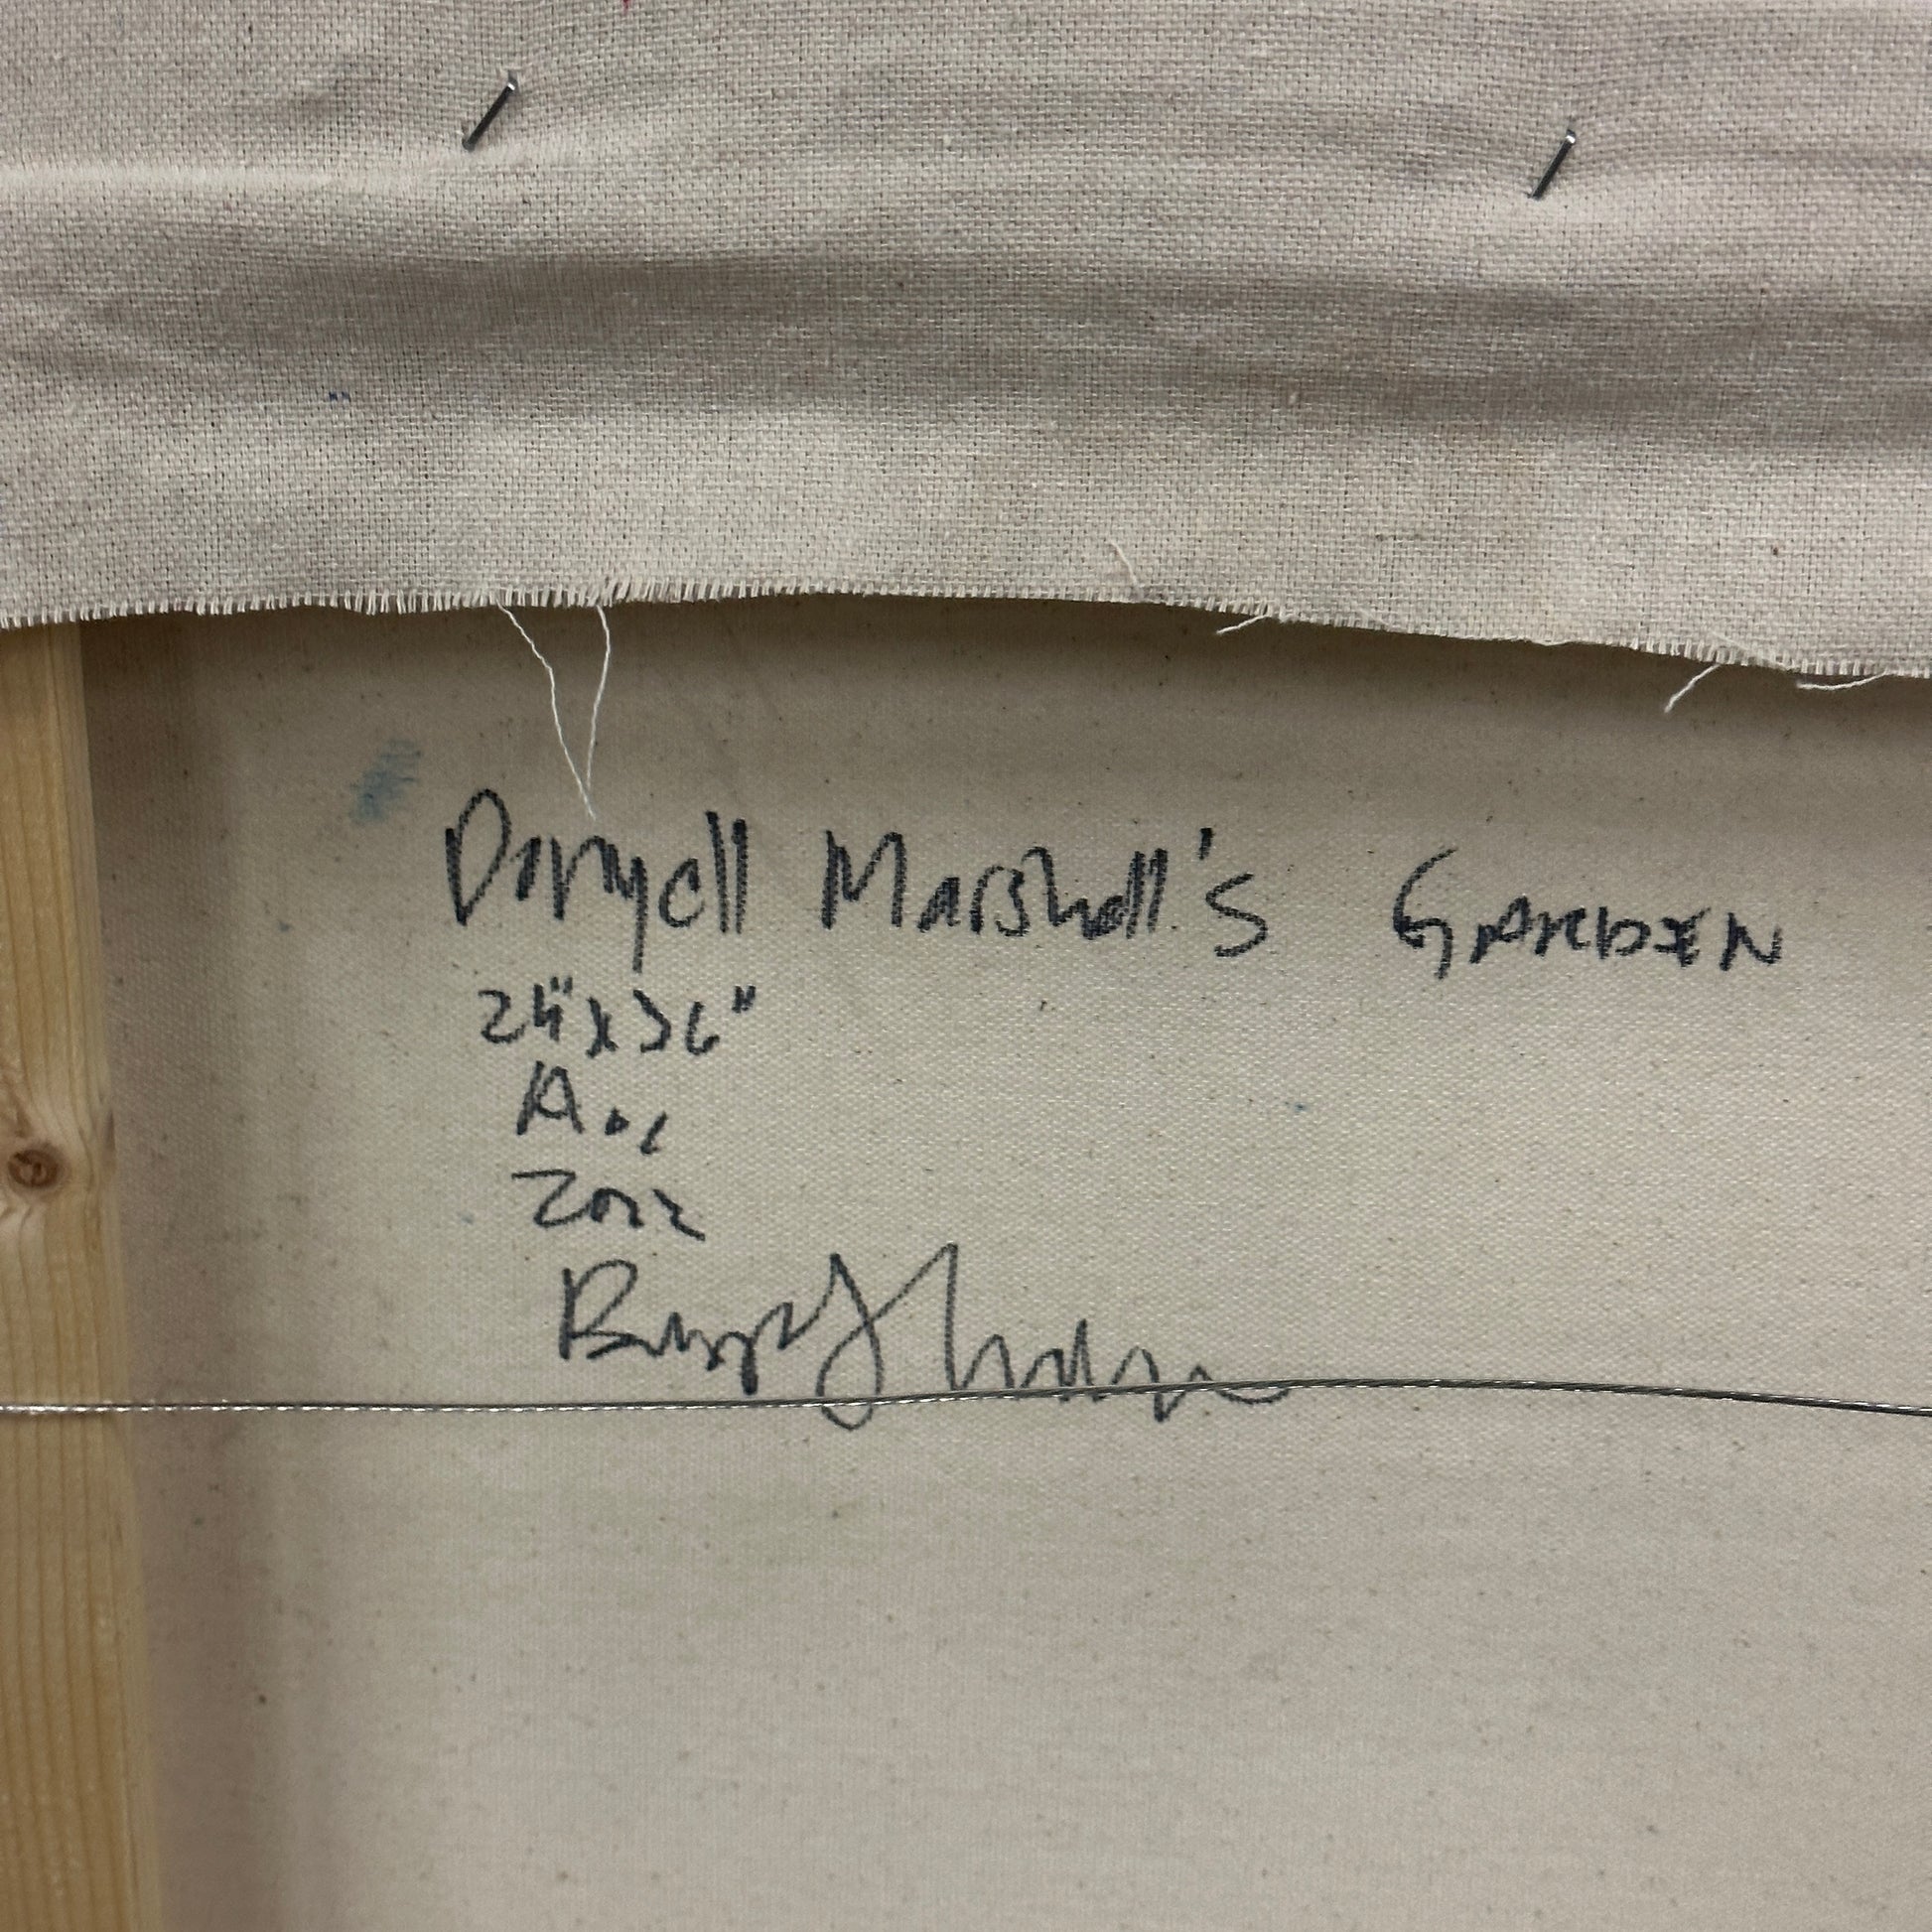 Donyell Marshall's GARDEN
24"x36"
A.O.C
2022